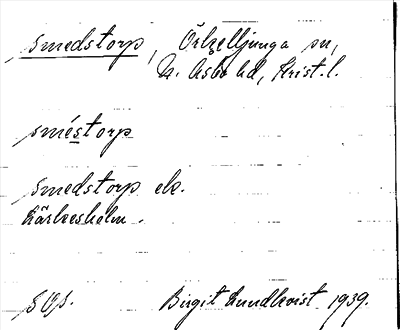 Smedstorp, Örkelljunga sn,
N. Åsbo hd, Krist. l.
smestorp
Smedstorp el.
Kärkesholm.
Birgit Lundkvist 1939.